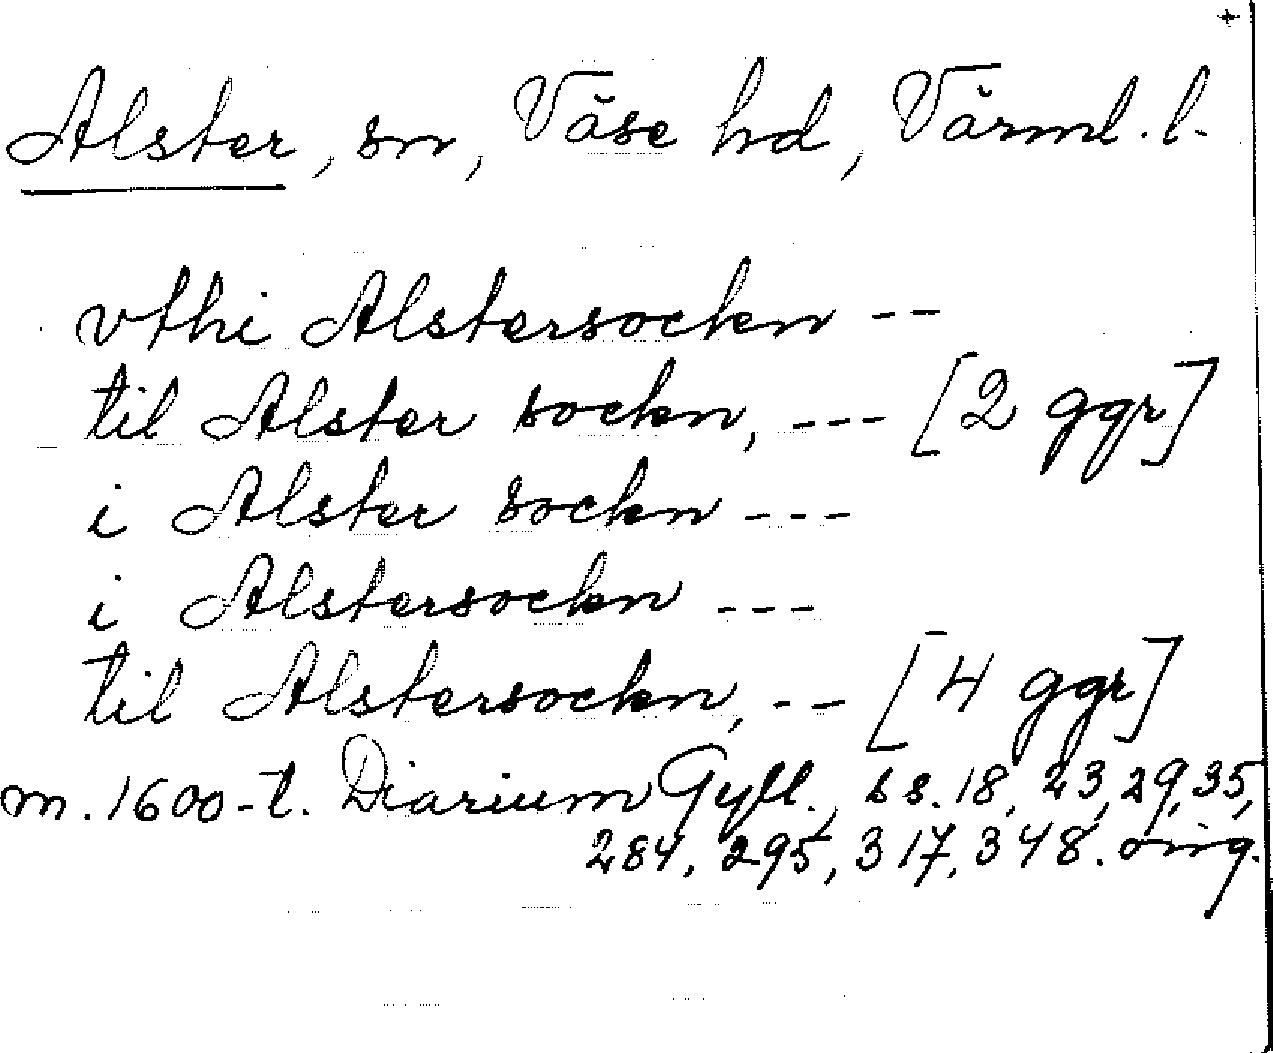 +
Alster, sn, Väse hd, Värml. l.
vthi Alstersockn --
til Alster sockn, --- [2 ggr]
i Alster sockn ---
i Alstersockn ---
til Alstersockn, -- [4 ggr]
m. 1600-t. Diarium Gyll., ss. 18, 23, 29, 35,
284, 295, 317, 348. orig.